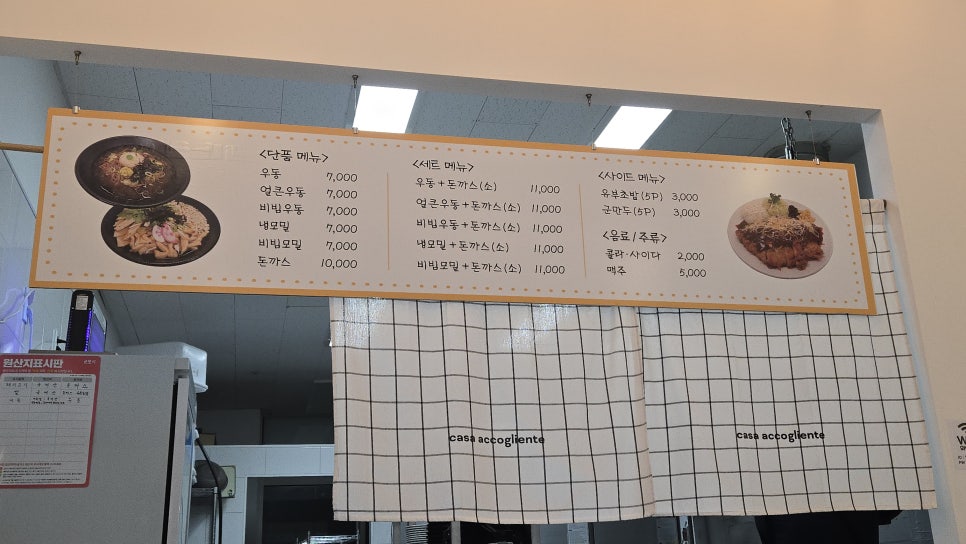 <단품 메뉴>
우동 7,000
얼큰우동 7,000
비빔우동 7,000
냉모밀 7,000
비빔모밀 7,000
돈까스 10,000
<세트 메뉴>
우동+돈까스(소) 11,000
얼큰우동+돈까스(소) 11,000
비빔우동+돈까스(소) 11,000
냉모밀+돈까스(소) 11,000
비빔모밀+돈까스(소) 11,000
<사이드 메뉴>
유부초밥(5P) 3,000
군만두(5P) 3,000
<음료/주류>
콜라·사이다 2,000
맥주 5,000
원산지표시판
casa accogliente
casa accogliente